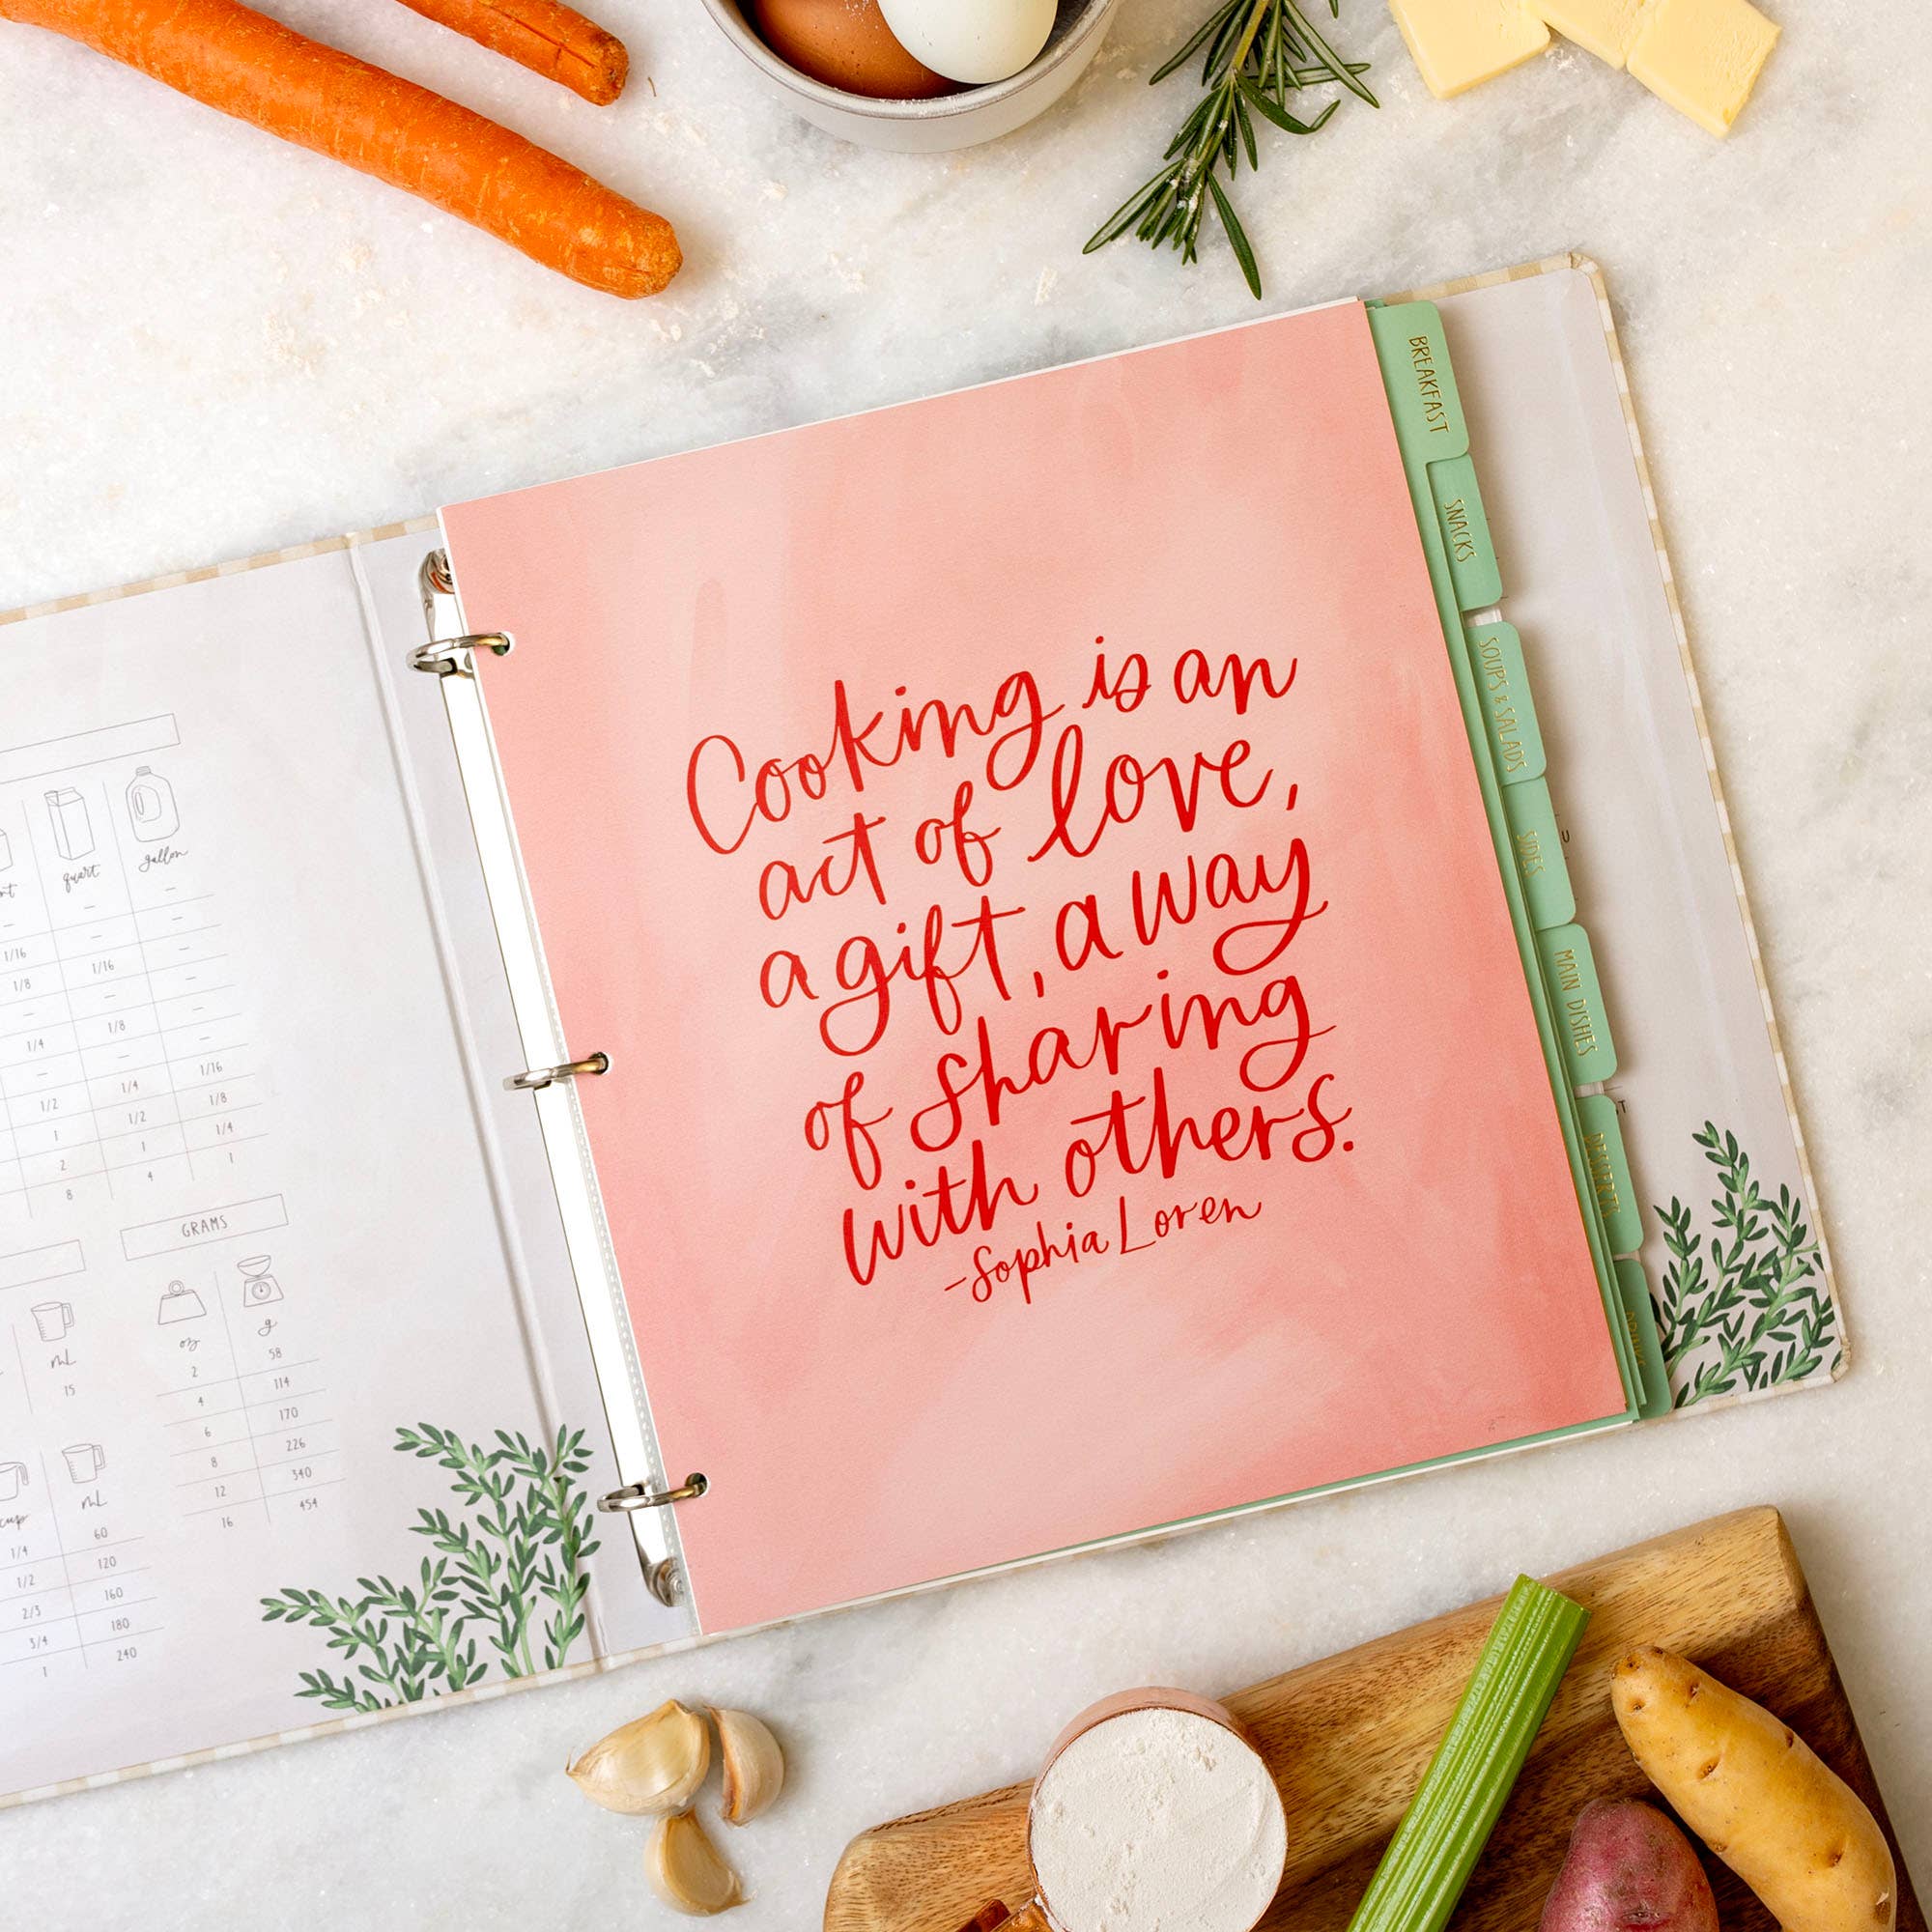 nt
quart
gallon
–
–
–
1/16
–
–
1/8
1/16
–
–
–
–
1/4
1/8
–
–
–
–
1/2
1/4
1/16
1
1/2
1/8
2
1
1/4
8
4
1
GRAMS
mL
15
oz
g
2
58
4
114
6
170
8
226
12
340
16
454
cup
mL
1/4
60
1/2
120
2/3
160
3/4
180
1
240
Cooking is an
act of love,
a gift, a way
of sharing
with others.
-Sophia Loren
BREAKFAST
SNACKS
SOUPS & SALADS
SIDES
MAIN DISHES
DESSERTS
DRINKS